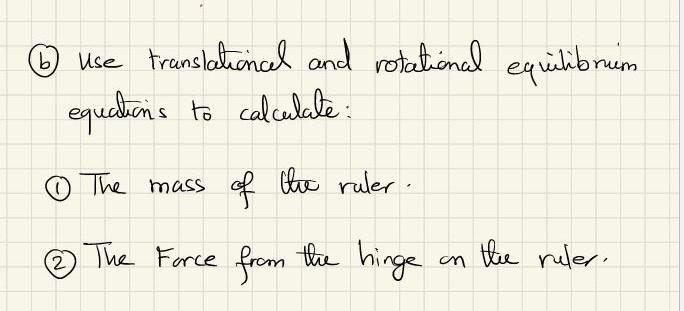 (b) Use translational and rotational equilibrium
equations to calculate:
(1) The mass of the ruler.
(2) The Force from the hinge on the ruler.